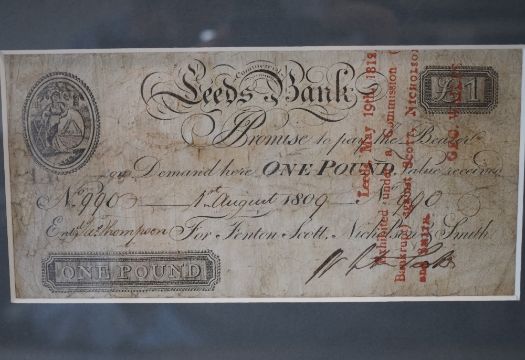 Leeds Bank
Commercial
£1
I Promise to pay the Bearer
on Demand here ONE POUND Value received
No. 990 1st August 1809 990
Entd. Thompson For Fenton Scott, Nicholson & Smith
ONE POUND
Leeds, May 19th, 1812
Exhibited under a Commission
Bankrupt against Scott, Nicholson
and Smith.
GEO.